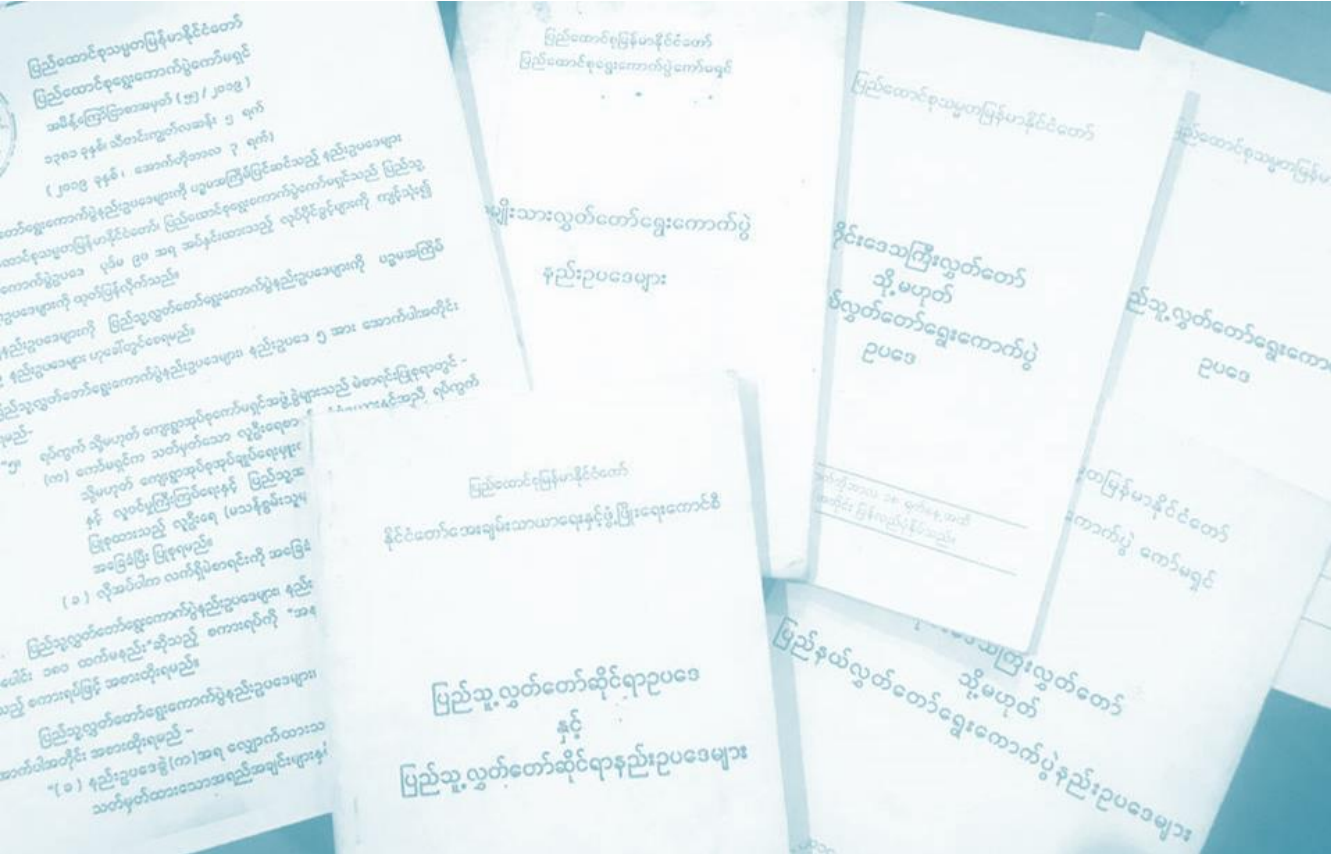 ပြည်ထောင်စုသမ္မတမြန်မာနိုင်ငံတော်
ပြည်ထောင်စုရွေးကောက်ပွဲကော်မရှင်
အမိန့်ကြော်ငြာစာအမှတ် (၅၅ / ၂၀၁၉)
၁၃၈၁ ခုနှစ်၊ သီတင်းကျွတ်လဆန်း ၅ ရက်
(၂၀၁၉ ခုနှစ်၊ အောက်တိုဘာလ ၃ ရက်)
တော်ရွေးကောက်ပွဲနည်းဥပဒေများကို ပဉ္စမအကြိမ်ပြင်ဆင်သည့် နည်းဥပဒေများ
ပြည်ထောင်စုသမ္မတမြန်မာနိုင်ငံတော်၊ ပြည်ထောင်စုရွေးကောက်ပွဲကော်မရှင်သည် ပြည်သူ့
ကောက်ပွဲဥပဒေ ပုဒ်မ ၉၀ အရ အပ်နှင်းထားသည့် လုပ်ပိုင်ခွင့်များကို ကျင့်သုံး၍
ဥပဒေများကို ထုတ်ပြန်လိုက်သည်။
နည်းဥပဒေများကို ပြည်သူ့လွှတ်တော်ရွေးကောက်ပွဲနည်းဥပဒေများကို ပဉ္စမအကြိမ်
နည်းဥပဒေများ ဟုခေါ်တွင်စေရမည်။
ပြည်သူ့လွှတ်တော်ရွေးကောက်ပွဲနည်းဥပဒေများ၊ နည်းဥပဒေ ၅ အား အောက်ပါအတိုင်း
ရမည်-
"၅။ ရပ်ကွက် သို့မဟုတ် ကျေးရွာအုပ်စုကော်မရှင်အဖွဲ့ခွဲများသည် မဲစာရင်းပြုစုရာတွင် -
(က) ကော်မရှင်က သတ်မှတ်သော လူဦးရေစာ နှင့်အညီ ရပ်ကွက်
သို့မဟုတ် ကျေးရွာအုပ်စုအုပ်ချုပ်ရေးမှူး
နှင့် လူဝင်မှုကြီးကြပ်ရေးနှင့် ပြည်သူ့အ
ပြုစုထားသည့် လူဦးရေ (မသန်စွမ်းသူ
အခြေခံပြီး ပြုစုရမည်။
(ခ) လိုအပ်ပါက လက်ရှိမဲစာရင်းကို အခြေခံ
ပြည်သူ့လွှတ်တော်ရွေးကောက်ပွဲနည်းဥပဒေများ၊ နည်း
ပေါင်း ၁၈၀ ထက်မနည်း"ဆိုသည့် စကားရပ်ကို "အန
သည့် စကားရပ်ဖြင့် အစားထိုးရမည်။
ပြည်သူ့လွှတ်တော်ရွေးကောက်ပွဲနည်းဥပဒေများ၊
အောက်ပါအတိုင်း အစားထိုးရမည် -
"(ခ) နည်းဥပဒေခွဲ(က)အရ လျှောက်ထားသ
သတ်မှတ်ထားသောအရည်အချင်းများနှင့်
ပြည်ထောင်စုမြန်မာနိုင်ငံတော်
ပြည်ထောင်စုရွေးကောက်ပွဲကော်မရှင်
မျိုးသားလွှတ်တော်ရွေးကောက်ပွဲ
နည်းဥပဒေများ
ပြည်ထောင်စုသမ္မတမြန်မာနိုင်ငံတော်
ိုင်းဒေသကြီးလွှတ်တော်
သို့မဟုတ်
လွှတ်တော်ရွေးကောက်ပွဲ
ဥပဒေ
ပြည်ထောင်စုသမ္မတမြန်မာ
ည်သူ့လွှတ်တော်ရွေးကော
ဥပဒေ
ပြည်ထောင်စုမြန်မာနိုင်ငံတော်
နိုင်ငံတော်အေးချမ်းသာယာရေးနှင့်ဖွံ့ဖြိုးရေးကောင်စီ
ပြည်သူ့လွှတ်တော်ဆိုင်ရာဥပဒေ
နှင့်
ပြည်သူ့လွှတ်တော်ဆိုင်ရာနည်းဥပဒေများ
တမြန်မာနိုင်ငံတော်
ကောက်ပွဲ ကော်မရှင်
ဒေသကြီးလွှတ်တော်
သို့မဟုတ်
ပြည်နယ်လွှတ်တော်ရွေးကောက်ပွဲနည်းဥပဒေများ